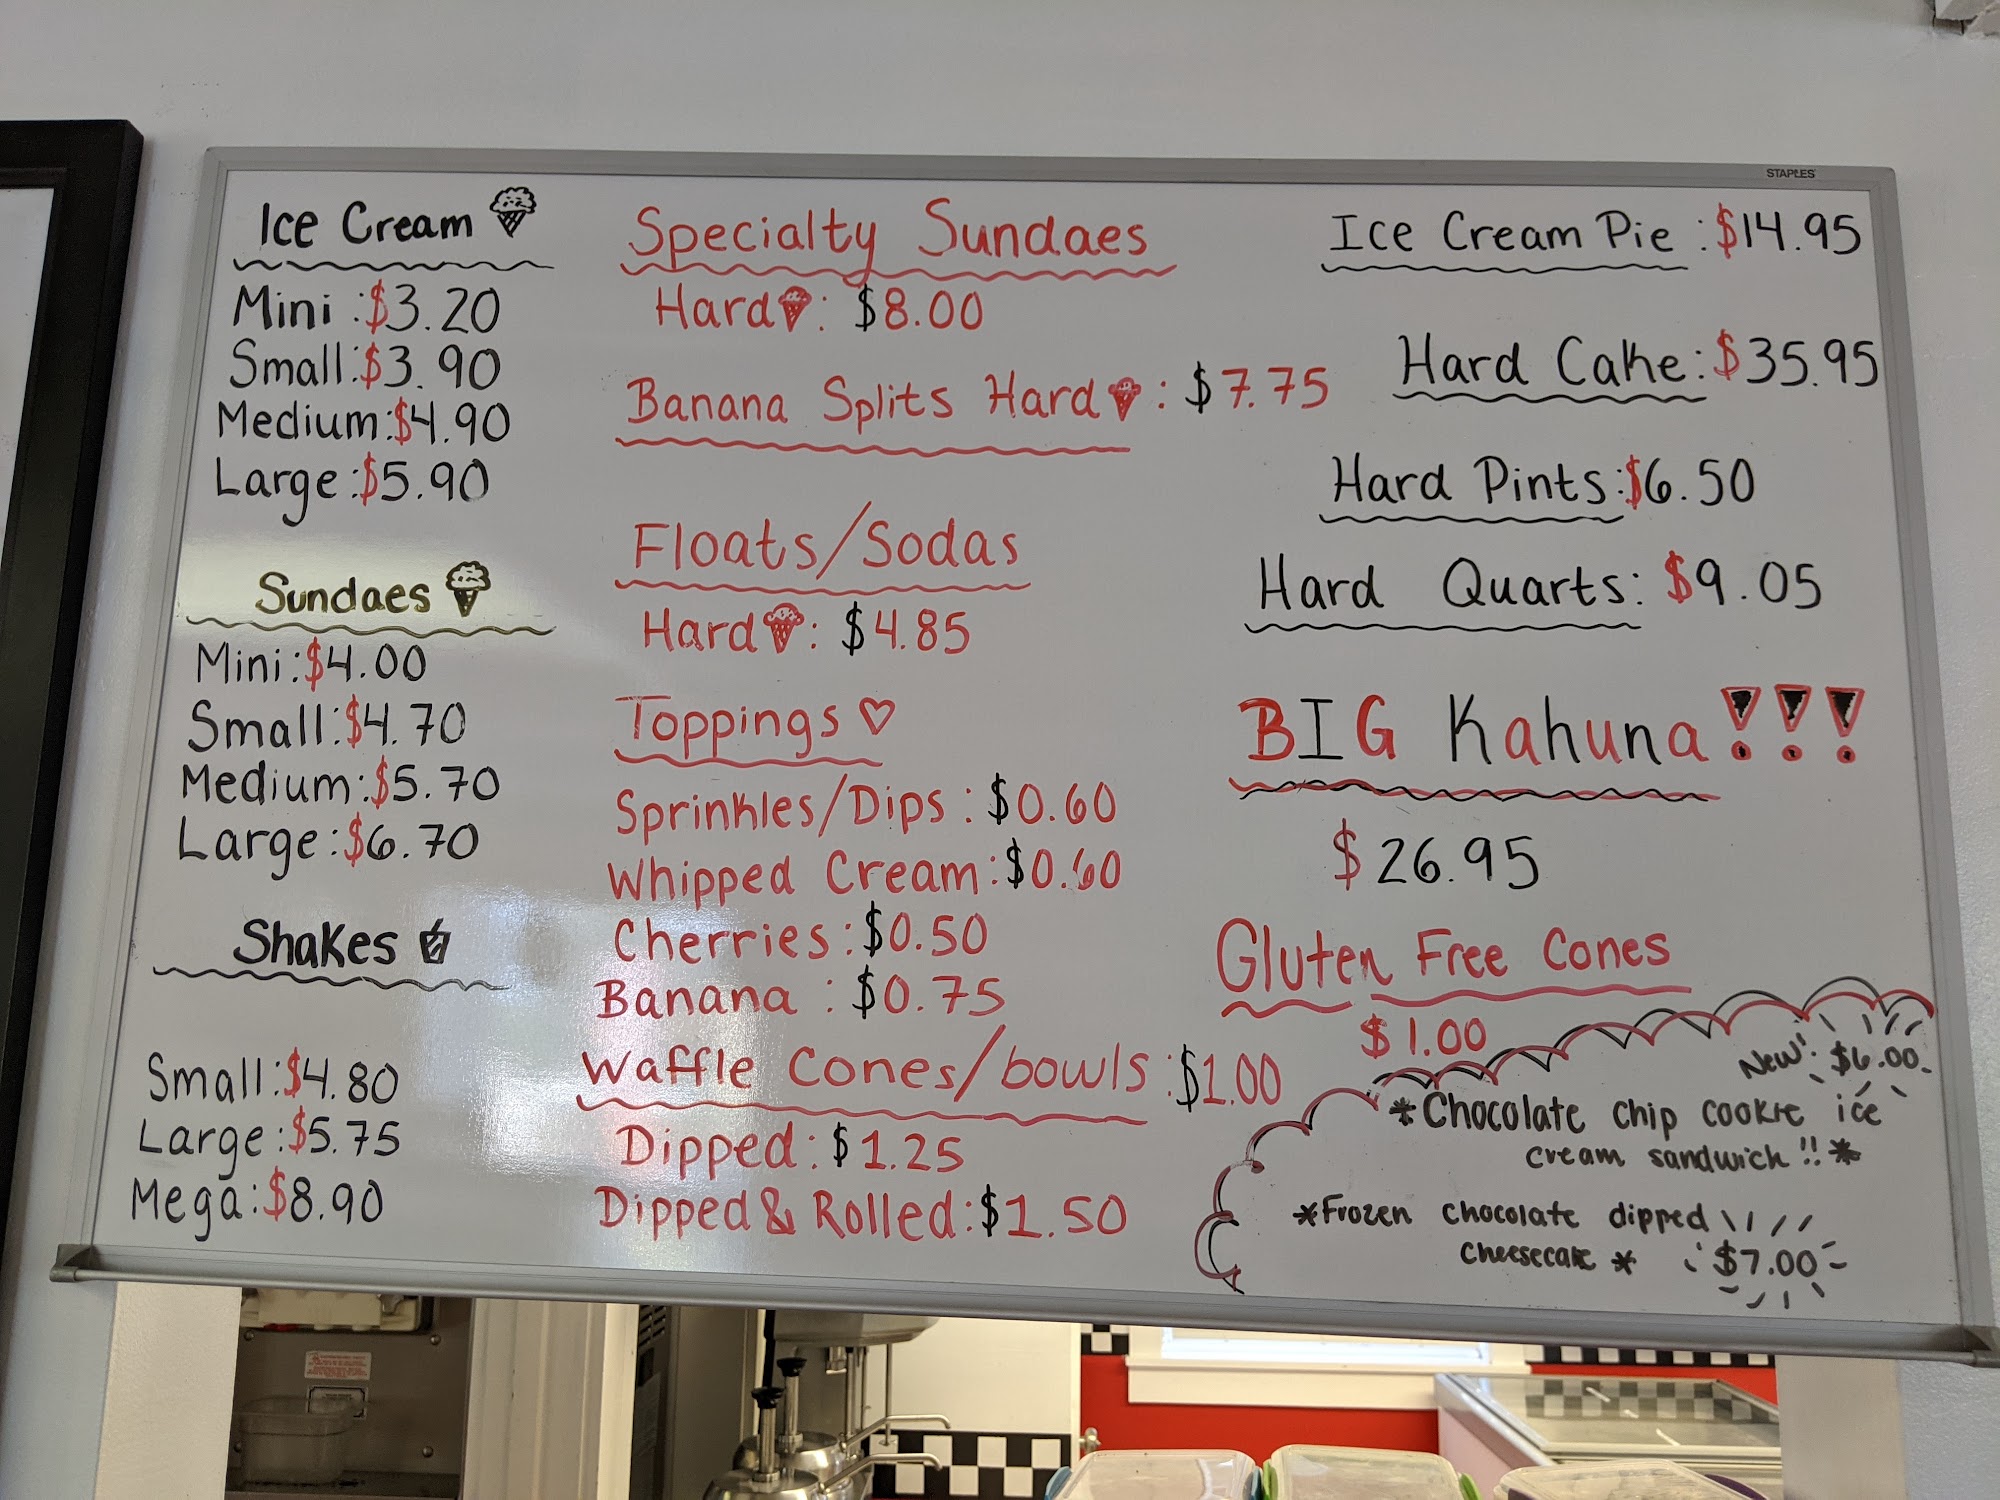 STAPLES
Ice Cream
Mini : $3.20
Small: $3.90
Medium: $4.90
Large: $5.90
Sundaes
Mini: $4.00
Small: $4.70
Medium: $5.70
Large: $6.70
Shakes
Small: $4.80
Large: $5.75
Mega: $8.90
Specialty Sundaes
Hard : $8.00
Banana Splits Hard : $7.75
Floats/Sodas
Hard : $4.85
Toppings
Sprinkles/Dips : $0.60
Whipped Cream: $0.60
Cherries: $0.50
Banana : $0.75
Waffle Cones/bowls : $1.00
Dipped: $1.25
Dipped & Rolled: $1.50
Ice Cream Pie : $14.95
Hard Cake: $35.95
Hard Pints: $6.50
Hard Quarts: $9.05
BIG Kahuna!!!
$26.95
Gluten Free Cones
$1.00
New! $6.00
*Chocolate chip cookie ice
cream sandwich!!*
*Frozen chocolate dipped
cheesecake *
$7.00